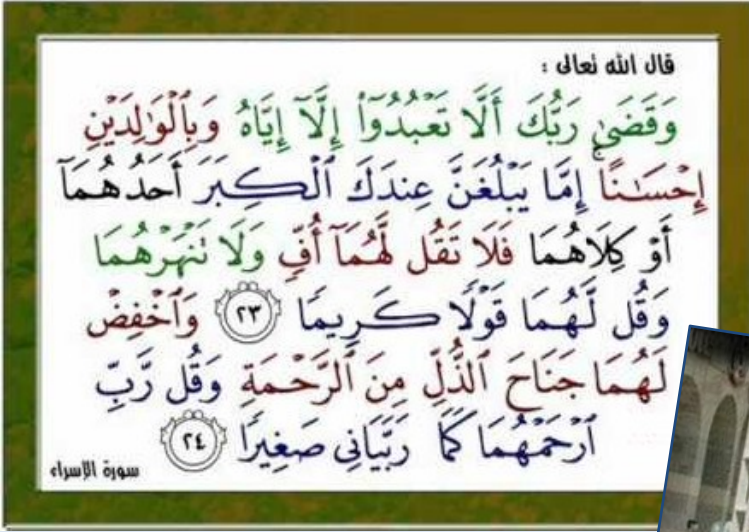 قال الله تعالى :
وَقَضَىٰ رَبُّكَ أَلَّا تَعْبُدُوٓا۟ إِلَّآ إِيَّاهُ وَبِٱلْوَٰلِدَيْنِ
إِحْسَـٰنًا ۚ إِمَّا يَبْلُغَنَّ عِندَكَ ٱلْكِبَرَ أَحَدُهُمَآ
أَوْ كِلَاهُمَا فَلَا تَقُل لَّهُمَآ أُفٍّ وَلَا تَنْهَرْهُمَا
وَقُل لَّهُمَا قَوْلًا كَرِيمًا ٢٣ وَٱخْفِضْ
لَهُمَا جَنَاحَ ٱلذُّلِّ مِنَ ٱلرَّحْمَةِ وَقُل رَّبِّ
ٱرْحَمْهُمَا كَمَا رَبَّيَانِى صَغِيرًا ٢٤
سورة الإسراء